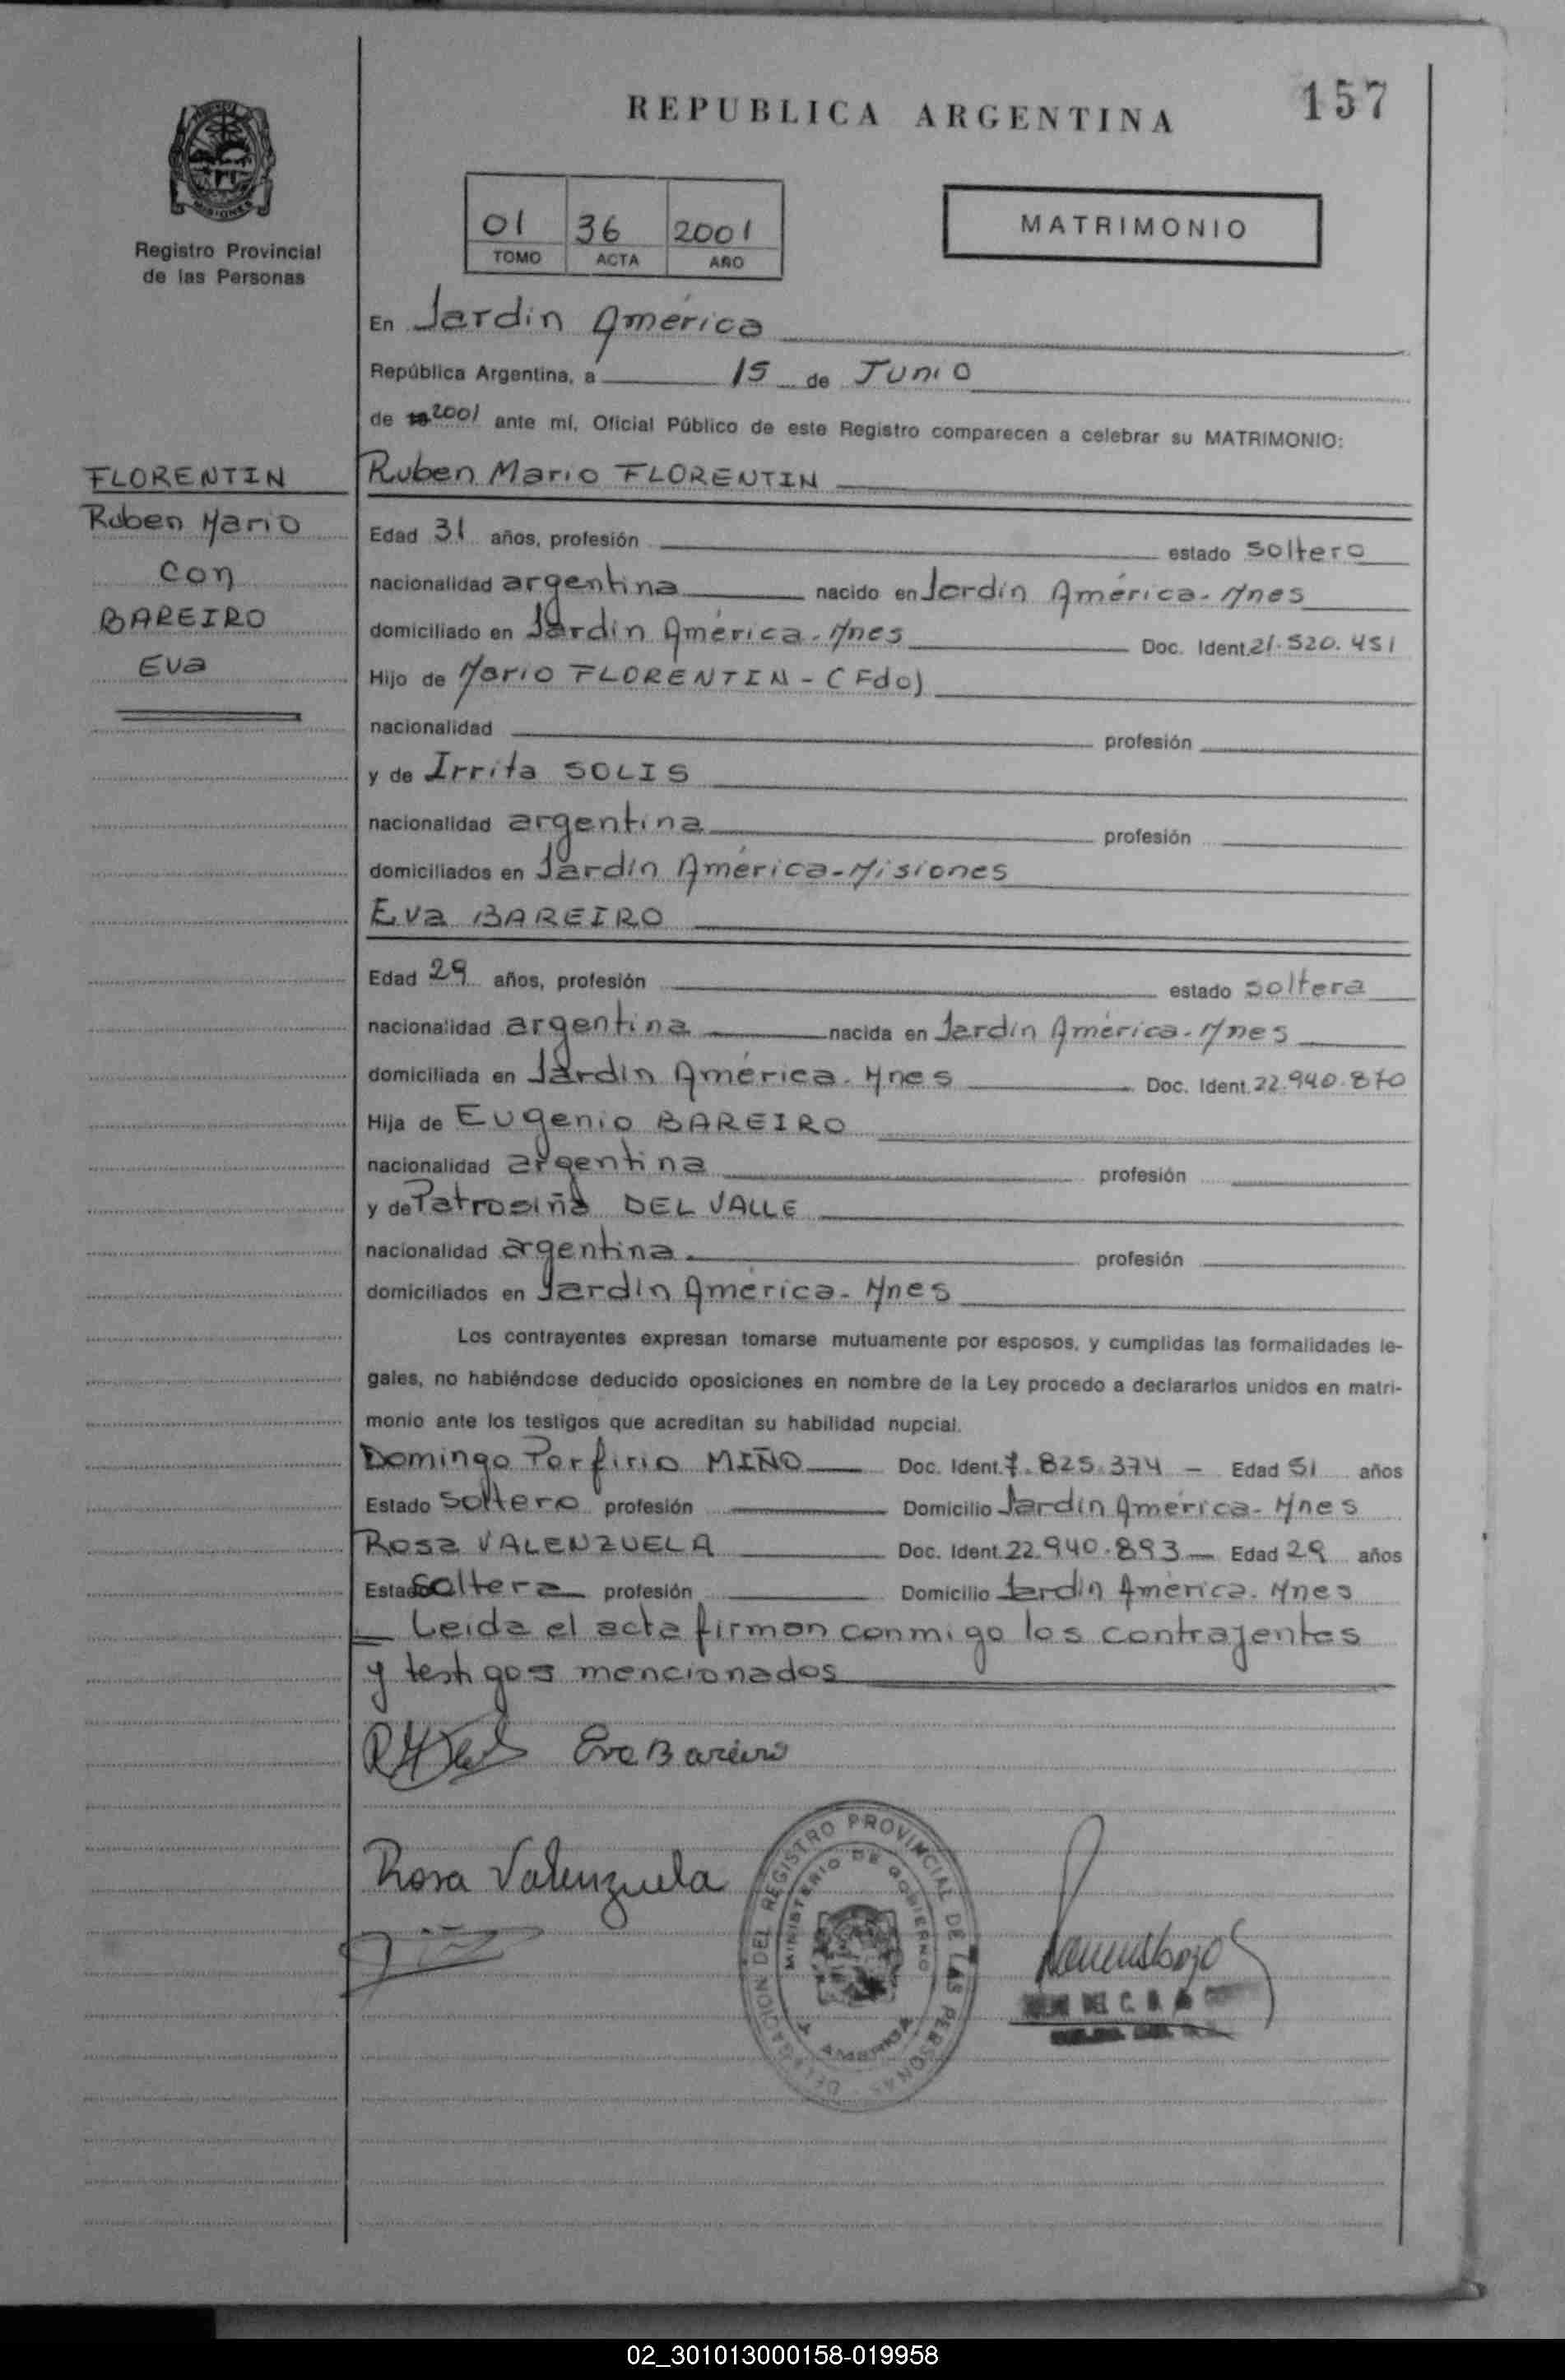 REPUBLICA ARGENTINA
157
MISIONES
Registro Provincial
de las Personas
01 36 2001
TOMO ACTA AÑO
MATRIMONIO
En Jardin América
República Argentina, a 15 de Junio
de 2001 ante mí, Oficial Público de este Registro comparecen a celebrar su MATRIMONIO:
FLORENTIN
Ruben Mario
con
BAREIRO
Eva
Ruben Mario FLORENTIN
Edad 31 años, profesión estado soltero
nacionalidad argentina nacido en Jardin América-Mnes
domiciliado en Jardin América-Mnes Doc. Ident. 21.520.451
Hijo de Mario FLORENTIN - (Fdo)
nacionalidad profesión
y de Irrita SOLIS
nacionalidad argentina profesión
domiciliados en Jardin América-Misiones
Eva BAREIRO
Edad 29 años, profesión estado soltera
nacionalidad argentina nacida en Jardin América-Mnes
domiciliada en Jardin América-Mnes Doc. Ident. 22.940.870
Hija de Eugenio BAREIRO
nacionalidad argentina profesión
y de Patrosiña DEL VALLE
nacionalidad argentina profesión
domiciliados en Jardin América-Mnes
Los contrayentes expresan tomarse mutuamente por esposos, y cumplidas las formalidades le-
gales, no habiéndose deducido oposiciones en nombre de la Ley procedo a declararlos unidos en matri-
monio ante los testigos que acreditan su habilidad nupcial.
Domingo Porfirio MIÑO Doc. Ident. 7.825.374 - Edad 51 años
Estado soltero profesión Domicilio Jardin América-Mnes
Rosa VALENZUELA Doc. Ident. 22.940.893 - Edad 29 años
Estado soltera profesión Domicilio Jardin América-Mnes
Leida el acta firman conmigo los contrajentes
y testigos mencionados
Eva Bareiro
Rosa Valenzuela
DELEGACION DEL REGISTRO PROVINCIAL DE LAS PERSONAS
MINISTERIO DE GOBIERNO
02_301013000158-019958